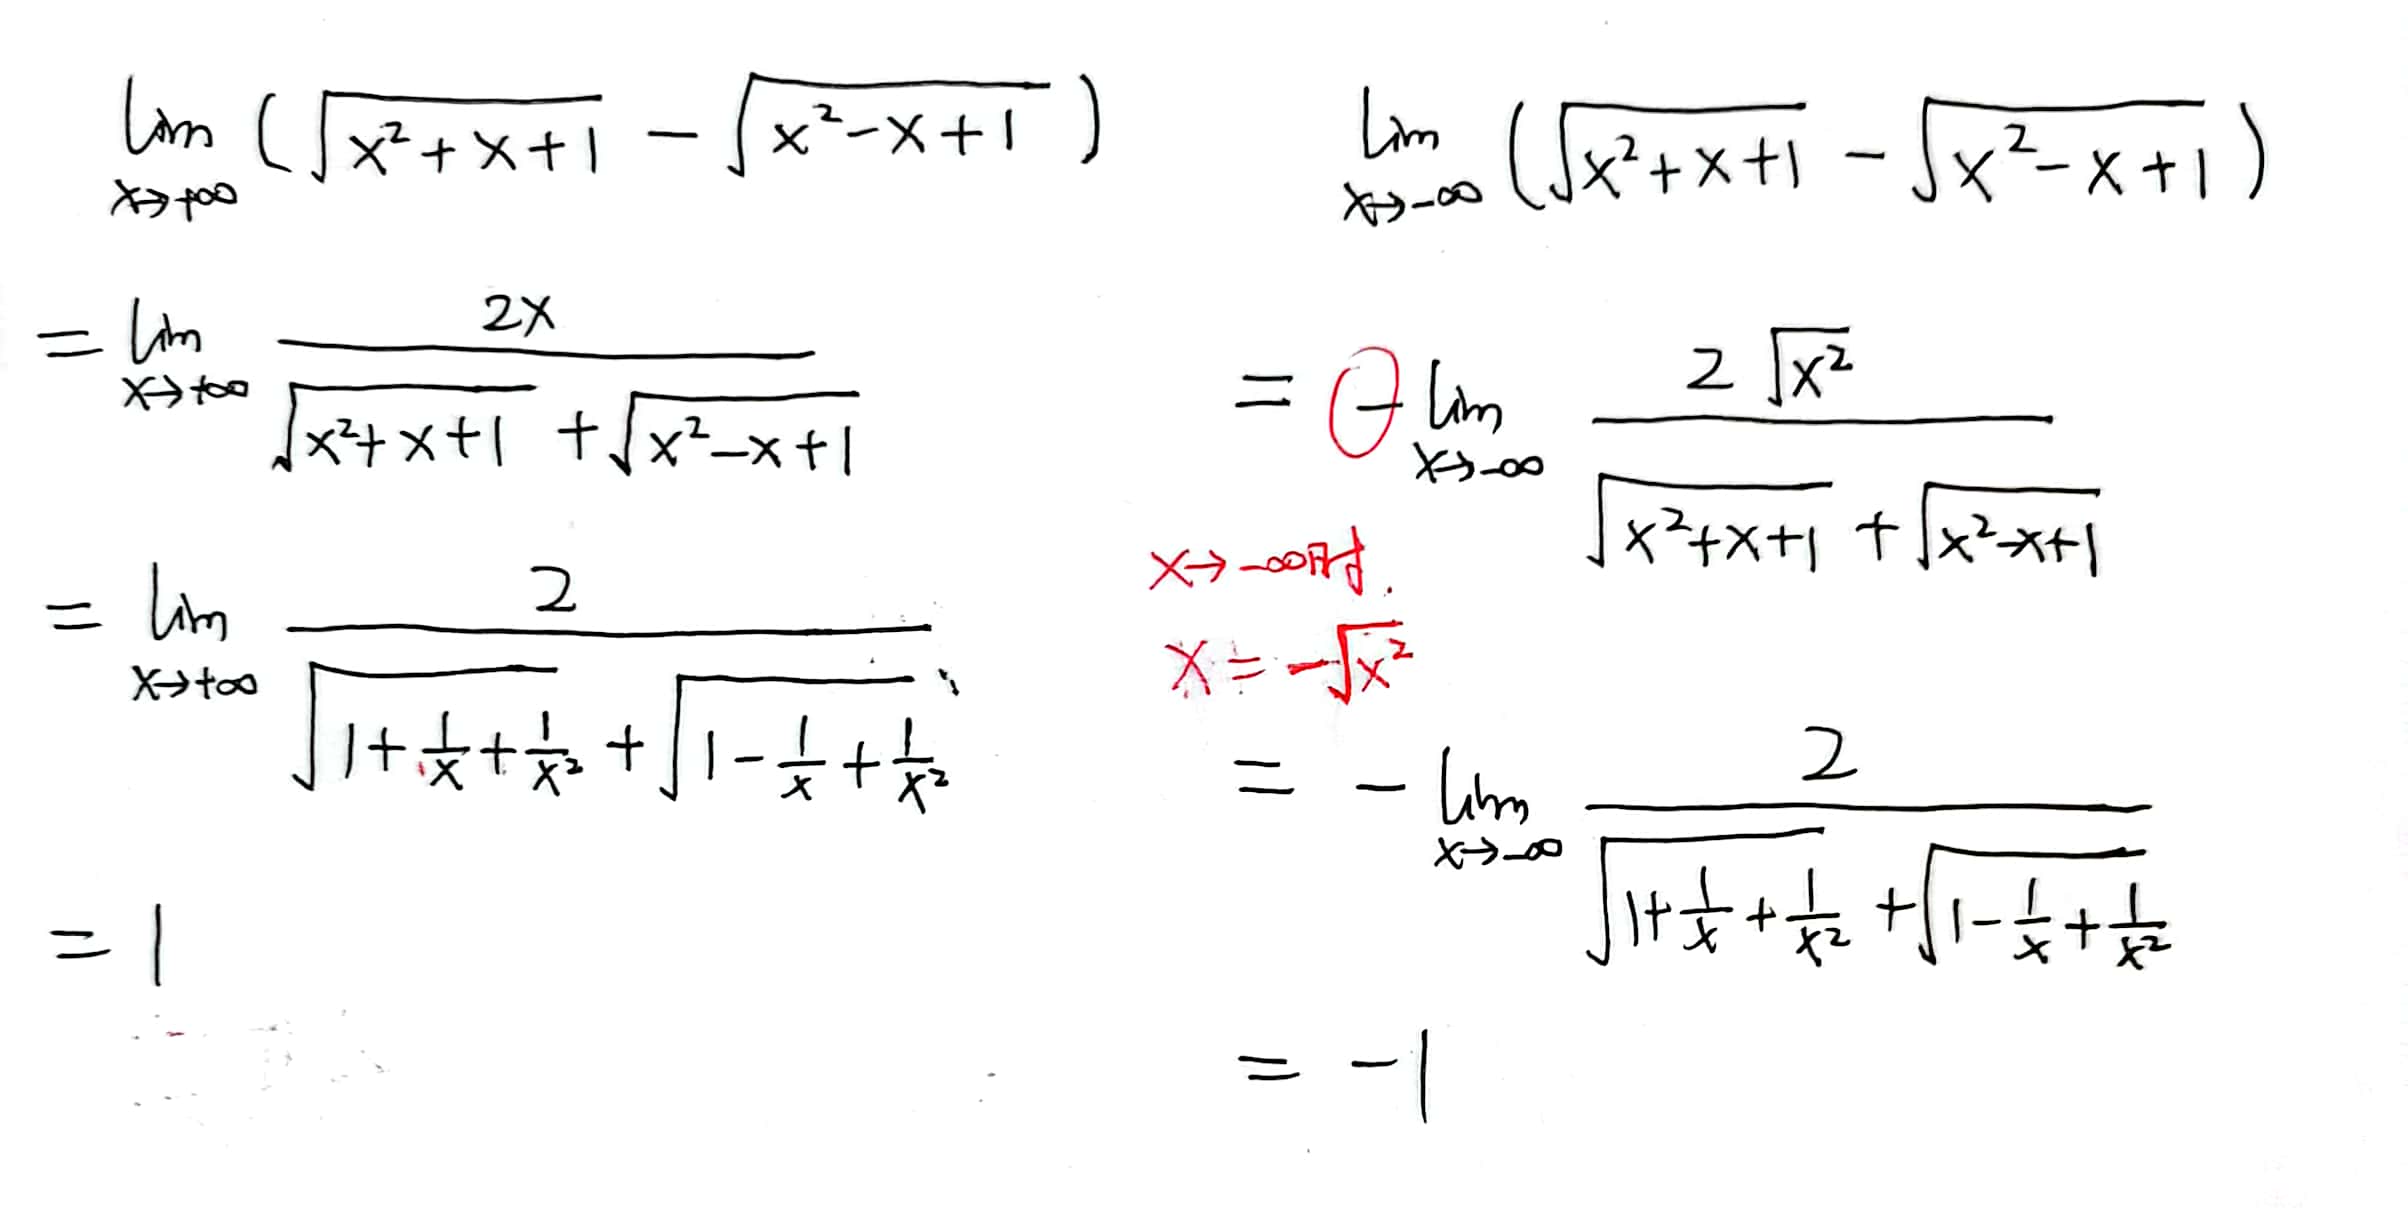 lim x→+∞ (√(x²+x+1) − √(x²−x+1))
= lim x→+∞ 2x / (√(x²+x+1) + √(x²−x+1))
= lim x→+∞ 2 / (√(1+1/x+1/x²) + √(1−1/x+1/x²))
= 1
lim x→−∞ (√(x²+x+1) − √(x²−x+1))
= − lim x→−∞ 2√(x²) / (√(x²+x+1) + √(x²−x+1))
x→−∞时.
x = −√(x²)
= − lim x→−∞ 2 / (√(1+1/x+1/x²) + √(1−1/x+1/x²))
= −1